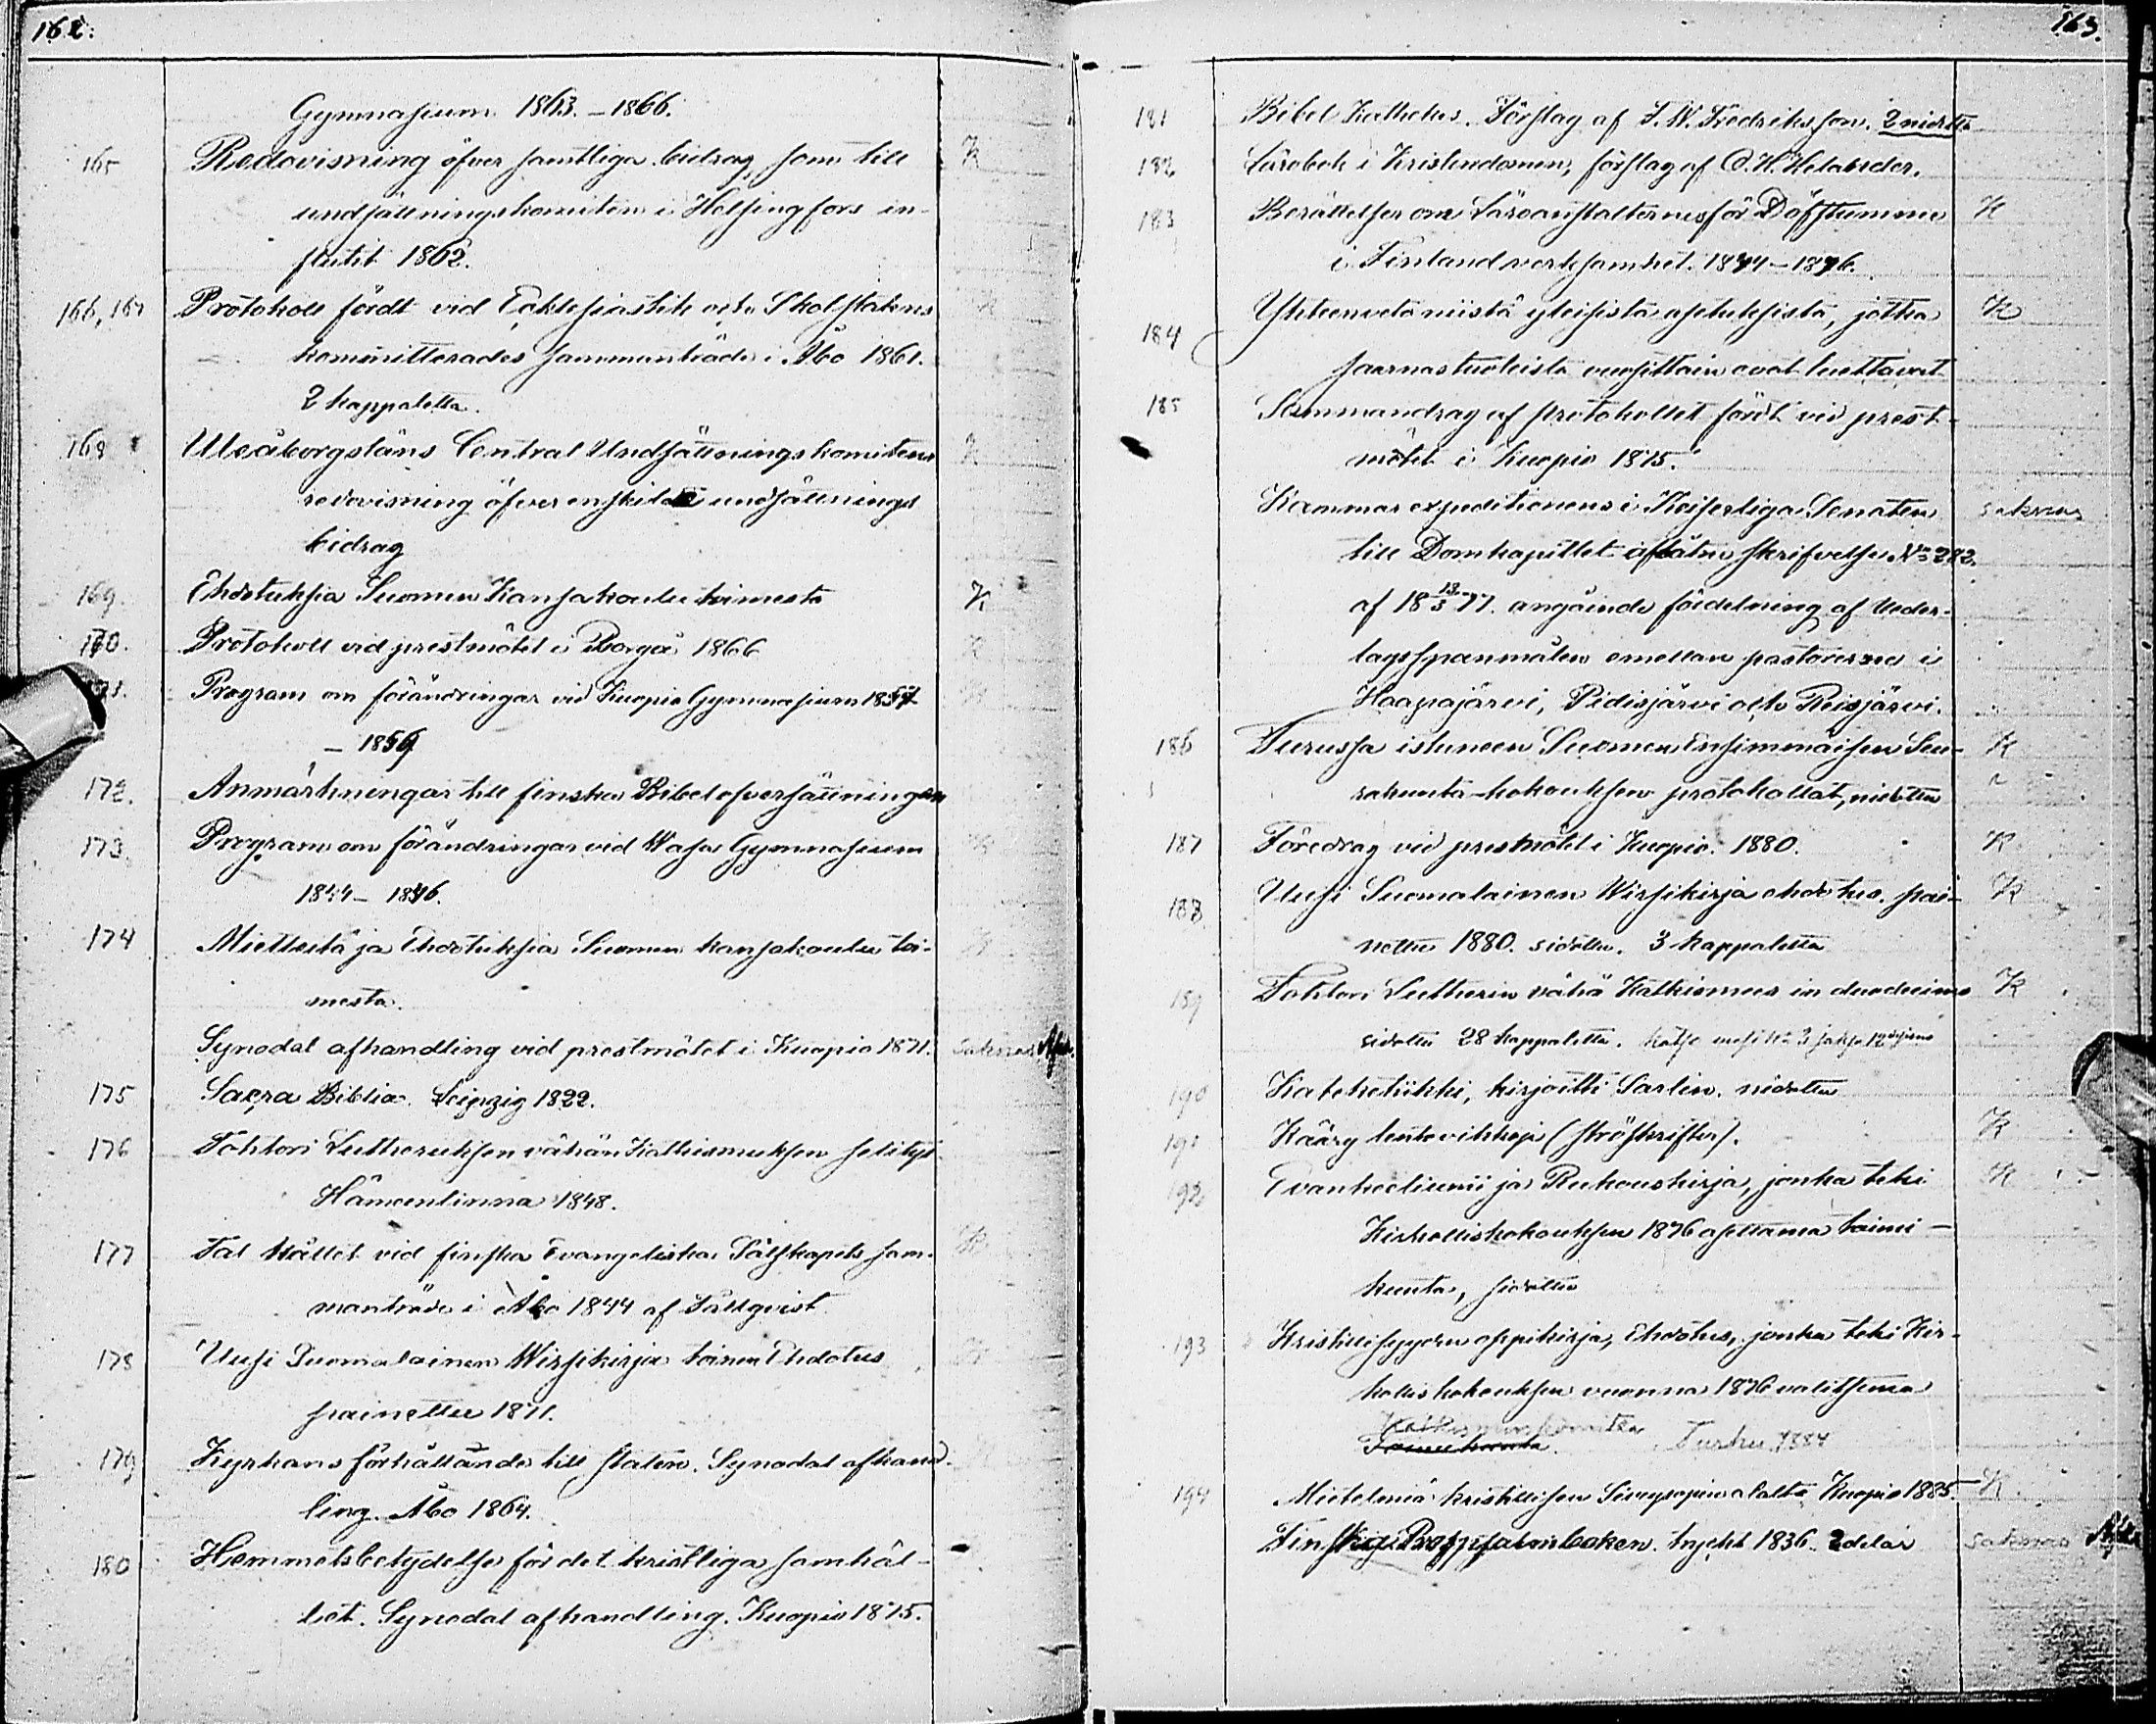 162.
Gymnasium 1863.–1866.
165 Redovisning öfver samtliga bidrag, som till K
undsättningskomiten i Helsingfors in-
flutit 1862.
166, 167 Protokoll fördt vid Ecklesiastik och Skolstatens K
kommitterades sammanträde i Åbo 1861.
2 kappaletta.
168 Uleåborgsläns Central Undsättningskomitens K
redovisning öfver enskilda undsättnings
bidrag
169. Ehdotuksia Suomen Kansakoulu toimesta K
170. Protokoll vid prestmötet i Borgå 1866 K
171. Program om förändringar vid Kuopio Gymnasium 1857 K
– 1859
172. Anmärkningar till finska Bibelöfversättningen
173. Program om förändringar vid Wasa Gymnasium K
1844–1846.
174 Mietteitä ja Ehdotuksia Suomen kansakoulu toi- K
mesta.
Synodal afhandling vid prestmötet i Kuopio 1871. saknas
175 Sacra Biblia. Leipzig 1822.
176 Tohtori Lutheruksen vähän Katkismuksen selitys
Hämeenlinna 1848.
177 Tal hållet vid finska Evangeliska Sällskapets sam- K
manträde i Åbo 1844 af Fällqvist
178 Uusi Suomalainen Wirsikirja toinen Ehdotus K
painettu 1871.
179 Kyrkans förhållande till staten. Synodal afhand-
ling. Åbo 1864.
180 Hemmets betydelse för det kristliga samhäl-
let. Synodal afhandling. Kuopio 1875.
163.
181 Bibel Kathekes. Förslag af J. W. Fredriksson. 2 nidettä
182 Lärobok i Kristendomen, förslag af C. H. Helander.
183 Berättelser om Läroanstalternes för Döfstumme K
i Finland verksamhet. 1874–1876.
184 Yhteenveto niistä yleisistä asetuksista, jotka K
saarnastuoleista vuosittain ovat luettavat
185 Sammandrag af protokollet fördt vid prest-
mötet i Kuopio 1875.
Kammar expeditionens i Kejserliga Senaten saknas
till Domkapitlet aflåtne skrifvelse No 282.
af 18 13/3 77. angående fördelning af Neder-
lagsspanmålen emellan pastorerne i
Haapajärvi, Pidisjärvi och Reisjärvi.
186 Turussa istuneen Suomen Ensimmäisen Seu- K
rakunta-kokouksen protokollat, nidottu
187 Föredrag vid prestmötet i Kuopio. 1880. K
188 Uusi Suomalainen Wirsikirja ehdotus. pai- K
nettu 1880. sidottu. 3 kappaletta
189 Tohtori Lutherin vähä Katkismus in duodecimo K
sidottu 28 kappaletta.
190 Kateketiikki, kirjoitti Sarlin. nidottu
191 Kääry lentovihkoja (ströskrifter). K
192 Evankeeliumi ja Rukouskirja, jonka teki K
Kirkolliskokouksen 1876 asettama toimi-
kunta, sidottu
193 Kristillisyyden oppikirja, Ehdotus, jonka teki Kir-
kolliskokouksen vuonna 1876 valitsema
Katkismuskomitea
Toimikunta. Turku, 1884
194 Mietelmiä kristillisen Siveysopin alalta Kuopio 1885. K
Finska Profpsalmboken. tryckt 1836. 2 delar saknas